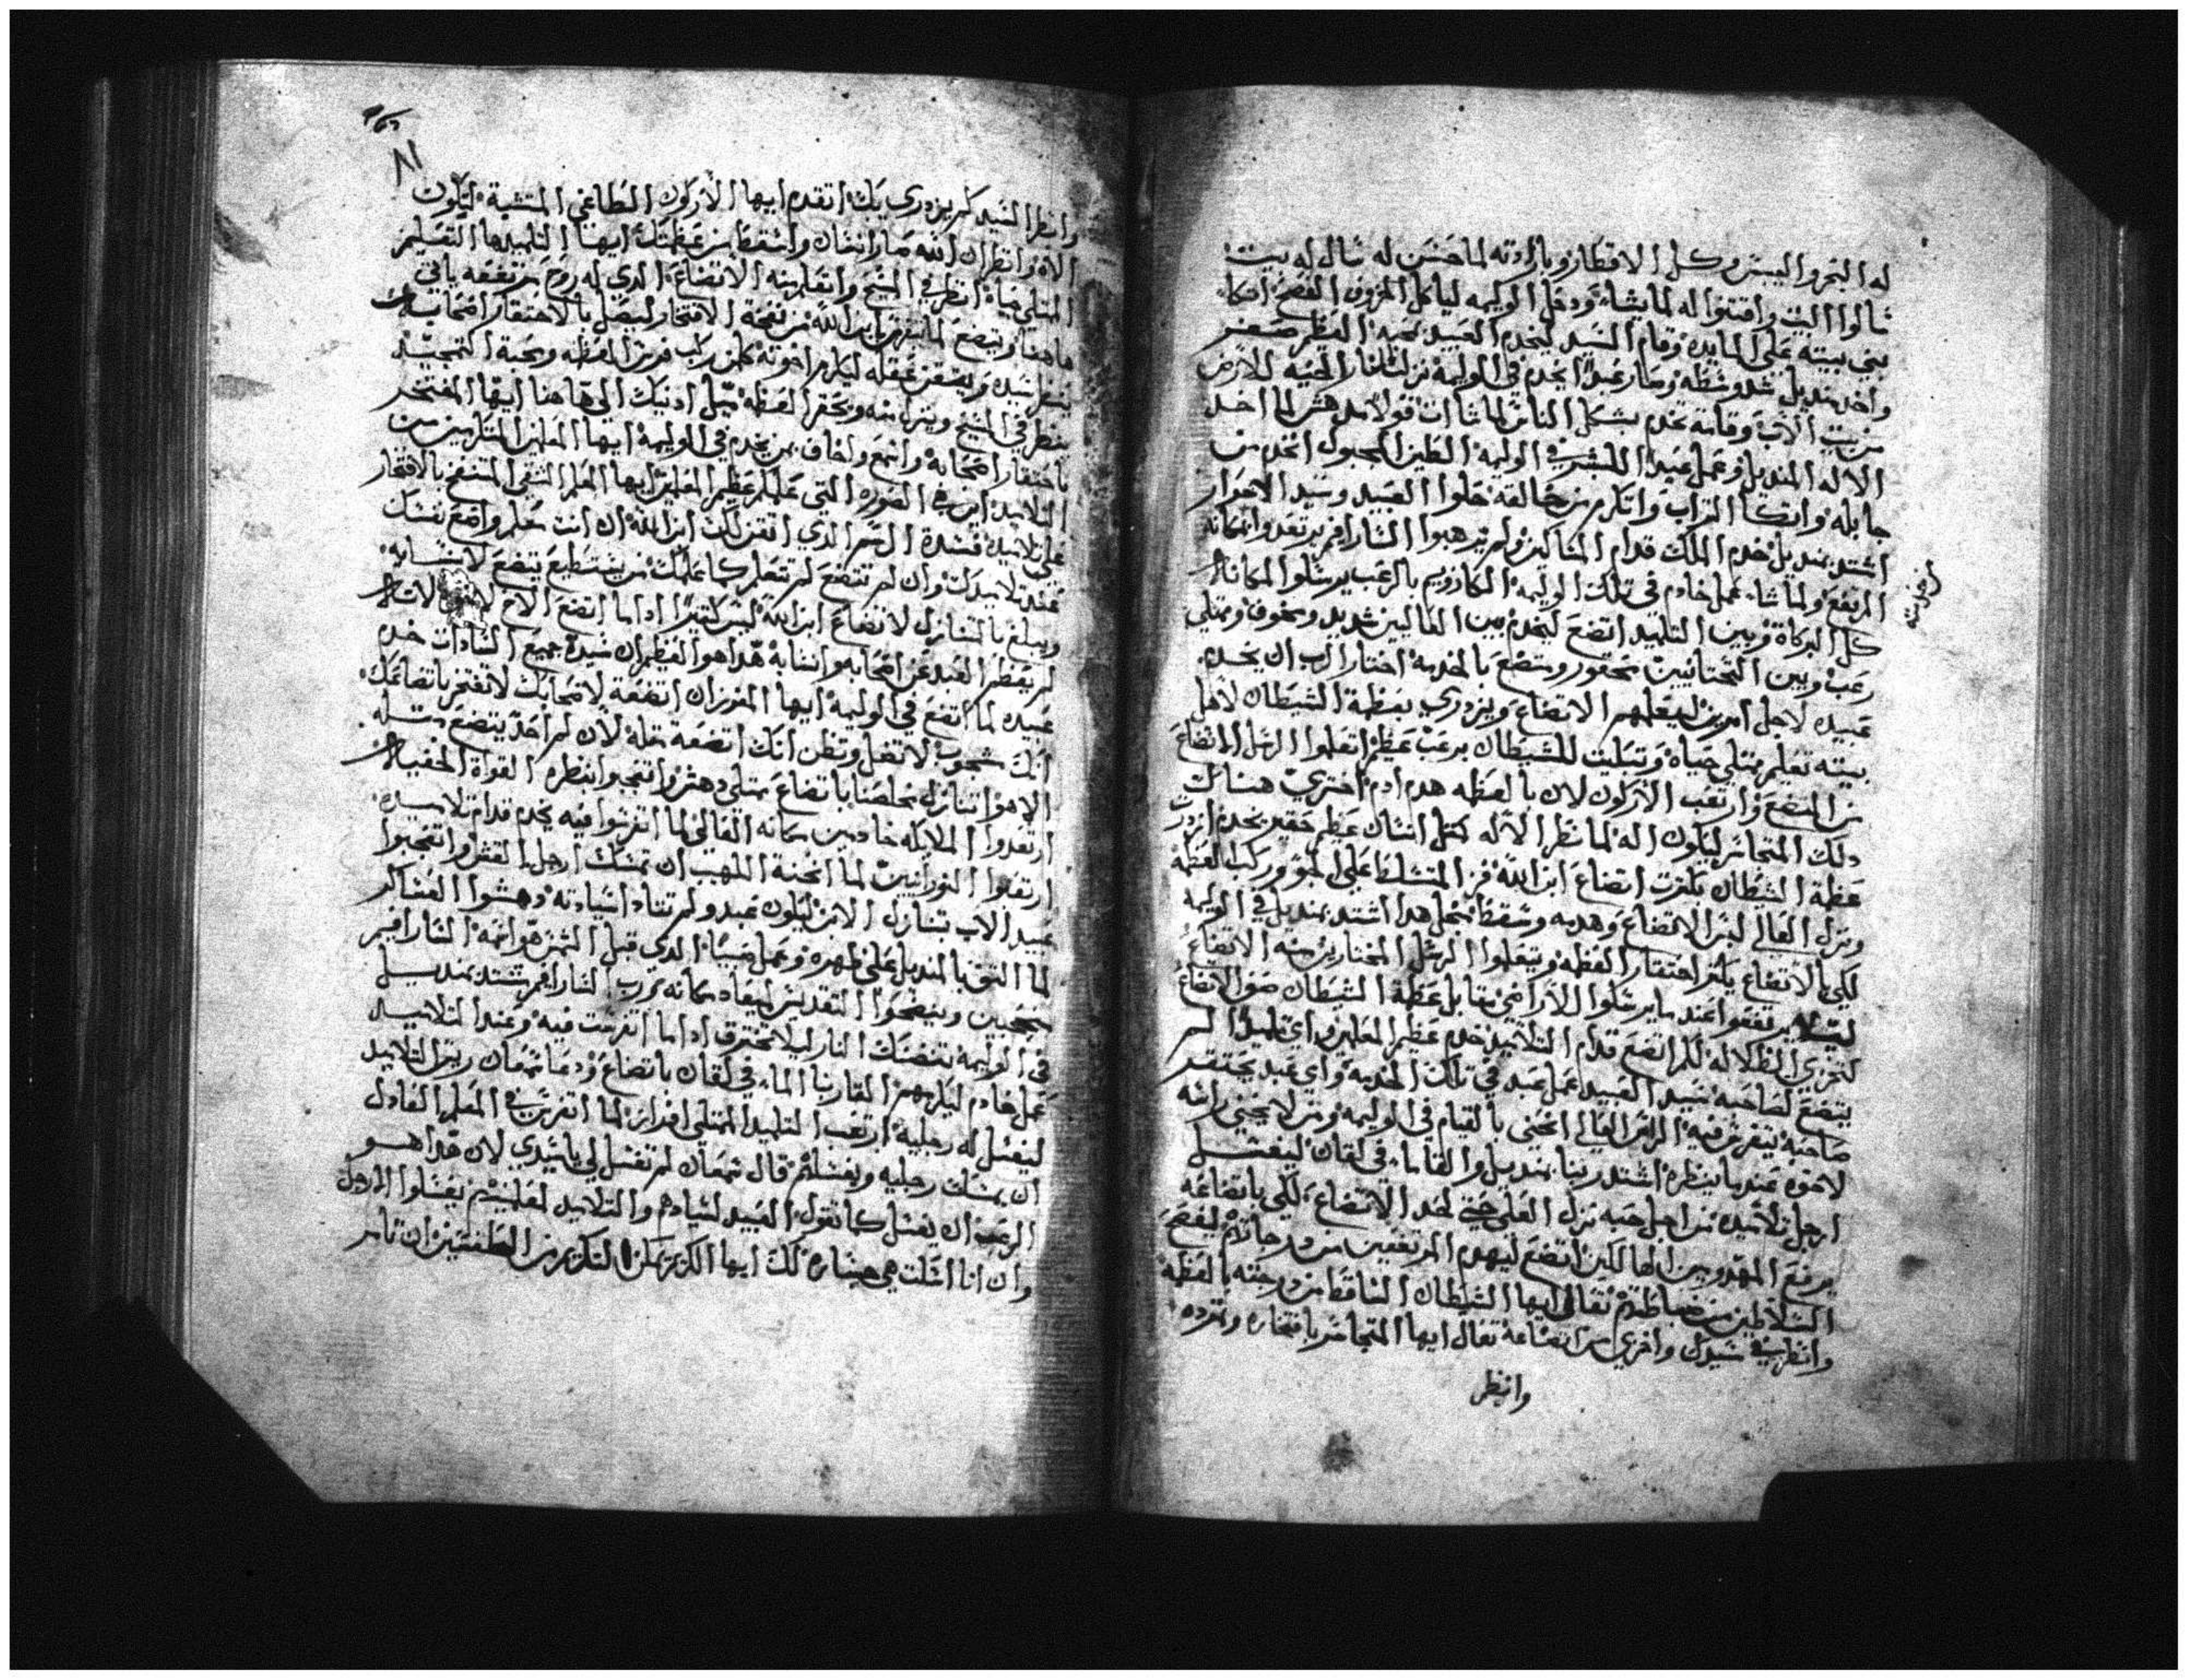 له البحر واليبس وكل الاقطار وبارادته لما حسن له سال له بيت
سالوا البيت واقتنوا له لما يشاء ودخل الوليمه لياكل الخروف الفصح اتكا
بني بيته على المايده وقام السيد ليخدم العبيد بمحبه العظيم صغر
واخد منديل شد وسطه وصار عبدا يخدم في الوليمه نزلت النار الحيه للارض
من بيت الاب وقامة تخدم بشكل الناس لما شات قولا مدهش لما اخد
الاله المنديل وعمل عبدا للبشر في الوليمه الطين المجبول اتخدم من
جابله واتكا التراب واتكرم من خالقه خلوا العبيد وسيد الاحرار
اشتد بمنديل خدم الملك قدام المساكين ولم يرهبوا السارافيم يرتعدوا مكانه
المرتفع ولما شاء عمل خادم في تلك الوليمه الكاروبيم بالرعب يرسلوا المكانه
كل البركاة وبين التلاميد اتضع ليخدم بين العاليين شديد ومخوف وممتلي
رعب وبين التحتانيين محقور ومتضع بالخدمه اختار الرب ان يخدم
عبيده لاجل امرين ليعلمهم الاتضاع ويزدري بعظمة الشيطان لاهل
بيته تعليم ممتلي حياه وتبكيت للشيطان برعب عظيم اتعلموا الرسل الاتضاع
من المتضع وارتعب الاركون لان بالعظمه هدم ادم اختري هناك
دلك المتجاسر ليكون اله لما نظر الاله كمثل انسان عظيم حقير يخدم ازدرت
عظمة الشيطان بكترت اتضاع ابن الله فر المتسلط على الجو وركب العظمه
ونزل العالي لبس الاتضاع وهدمه وسقط من اجل هدا اشتد بمنديل في الوليمه
لكي بالاتضاع يكتر احتقار العظمه ويتعلموا الرسل المختارين منه الاتضاع
ليلا يرتفعوا عندما يرسلوا للاراضي مقابل عظمة الشيطان صور الاتضاع
لتخزي الظلاله كم اتضع قدام التلاميد خدم عظيم المعلمين واي تلميدا لم
يتضع لصاحبه سيد العبيد عمل عبد في تلك الخدمه واي عبد يحتقر
صاحبه يتفرس فيه الراس العالي انحنى بالقيام في الوليمه ومن لا يحني راسه
لاخوه عندما ينظره اشتد ربنا بمنديل والقا ماء في لقان ليغسل
ارجل تلاميده من اجل حبه نزل العلي حتي لحد الاتضاع لكي باتضاعه
يرفع المهدومين الها لكين اتضع ليهدم المرتفعين من درجاتهم ليفضح
السلاطين من ضباطهم تعالى ايها الشيطان الساقط من درجته بالعظمه
وانظر في سيدك واخزي من اتضاعه تعال ايها المتجاسر بافتخاره وتمرده
وانظر
٨١
وانظر السيد كم يزدري بك اتقدم ايها الاركون الطاغي المتشبه ليكون
الاه وانظر ان الله صار انسان واسقط من عظمتك ايها التلميدها التعليم
الممتلي حياه انظر في المسيح واتعلم منه الاتضاع الدي له روح مرتفعه ياتي
ها هنا ويتضع لما يتفرس بابن الله من نفخة الافتخار ليصل بالاحتقار اصحابه
ينظر سيده ويصغر عقله ليكرم اخوته كلمن ركب فرس العظمه ومحبة التمجيد
ينظر في المسيح وينزل منه ويحقر العظمه ميل ادنيك الى ها هنا ايها المفتخر
باحتقار اصحابه واسمع واخاف بمن يخدم في الوليمه ايها المعلمين المتكبرين من
التلاميد اين هي الصوره التي علم عظيم المعلمين ايها المعلم الشقي المنتفخ بالافتخار
على تلاميده فسدة السر الدي اتقن لك ابن الله ان انت تعلم واضع نفسك
عند تلاميدك وان لم تتضع لم تتعلم كما علمك من يستطيع يتضع لانسابه
ويبلغ بالتنازل لاتضاع ابن الله ليس كتيرا اداما اتضع الاخ
لم يعظم العبد عن اصحابه وانسابه هدا هو العظيم ان سيدة جميع السادات خدم
عبيده لما اتضع في الوليمه ايها المفرزان اتضعة لاصحابك لا تفتخر باتضاعك
انك شجوب لا تضل وتظن انك اتضعة مثله لان لم احد يتضع مثله
الا هو اتنازل مخلصنا باتضاع ممتلي دهش واتعجبوا بنظره القواة الخفيا
ارتعدوا الملايكه خادمين مكانه العالي لما اتفرسوا فيه يخدم قدام تلاميده
ارتعبوا النورانيين لما انحنة اللهيب ان تمسك ارجل القش واتعجبوا
عبيد الاب تنازل الابن ليكون عبد ولم تتادا سيادته دهشوا العساكر
لما التف بالمنديل على ظهره وعمل صبيا الدي قبل الشمس هو اسمه السارافيم
متعجبين ويضجوا التقديس لبعاد مكانه رب السارافيم يشتد بمنديل
في الوليمه تفضك النار ليلا تحترق اداما اتفرست فيه وعند التلاميد
عمل خادم ليكرمهم القا ربنا الماء في لقان باتضاع ودعا شمعان ريس التلاميد
ليغسل له رجليه ارتعب التلميد الممتلي افراز لما اتفرس في المعلم العادل
ان يمسك رجليه ويغسلهم قال شمعان لم تغسل لي يا سيدي لان هدا هو
الرعب ان يغسل كما تقول العبيد لسيادهم والتلاميد لمعلمينهم يغسلوا الارجل
وان انا اتكلت هي خساره لك ايها الكريم تمكن التكريم من الطغمتين ان تامر